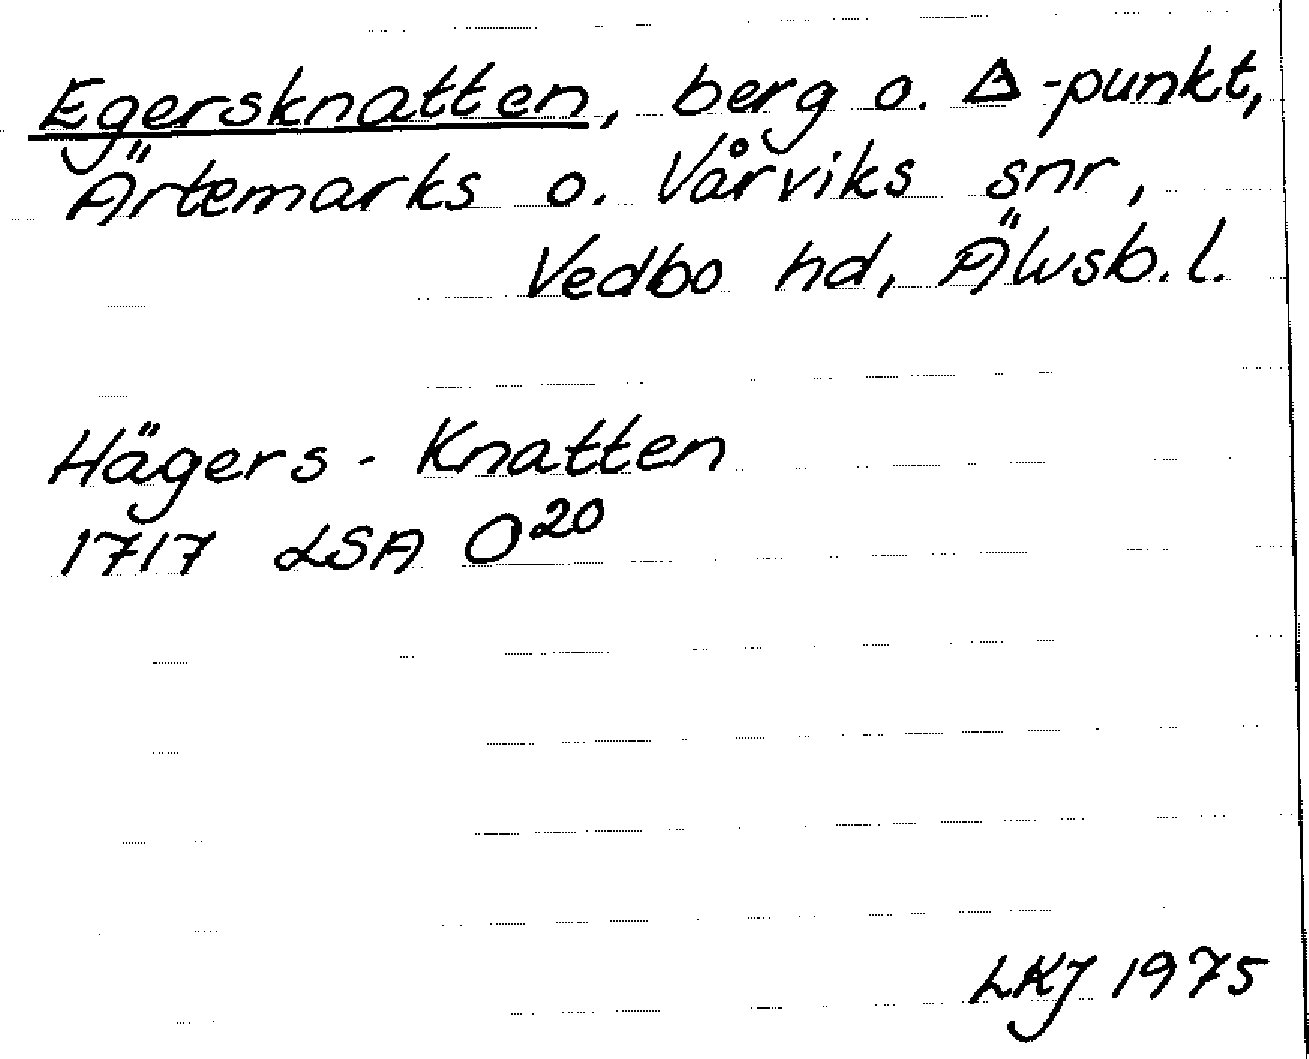 Egersknatten, berg o. Δ-punkt,
Ärtemarks o. Vårviks snr,
Vedbo hd, Älvsb. l.
Hägers - Knatten
1717 LSA O²⁰
LKJ 1975